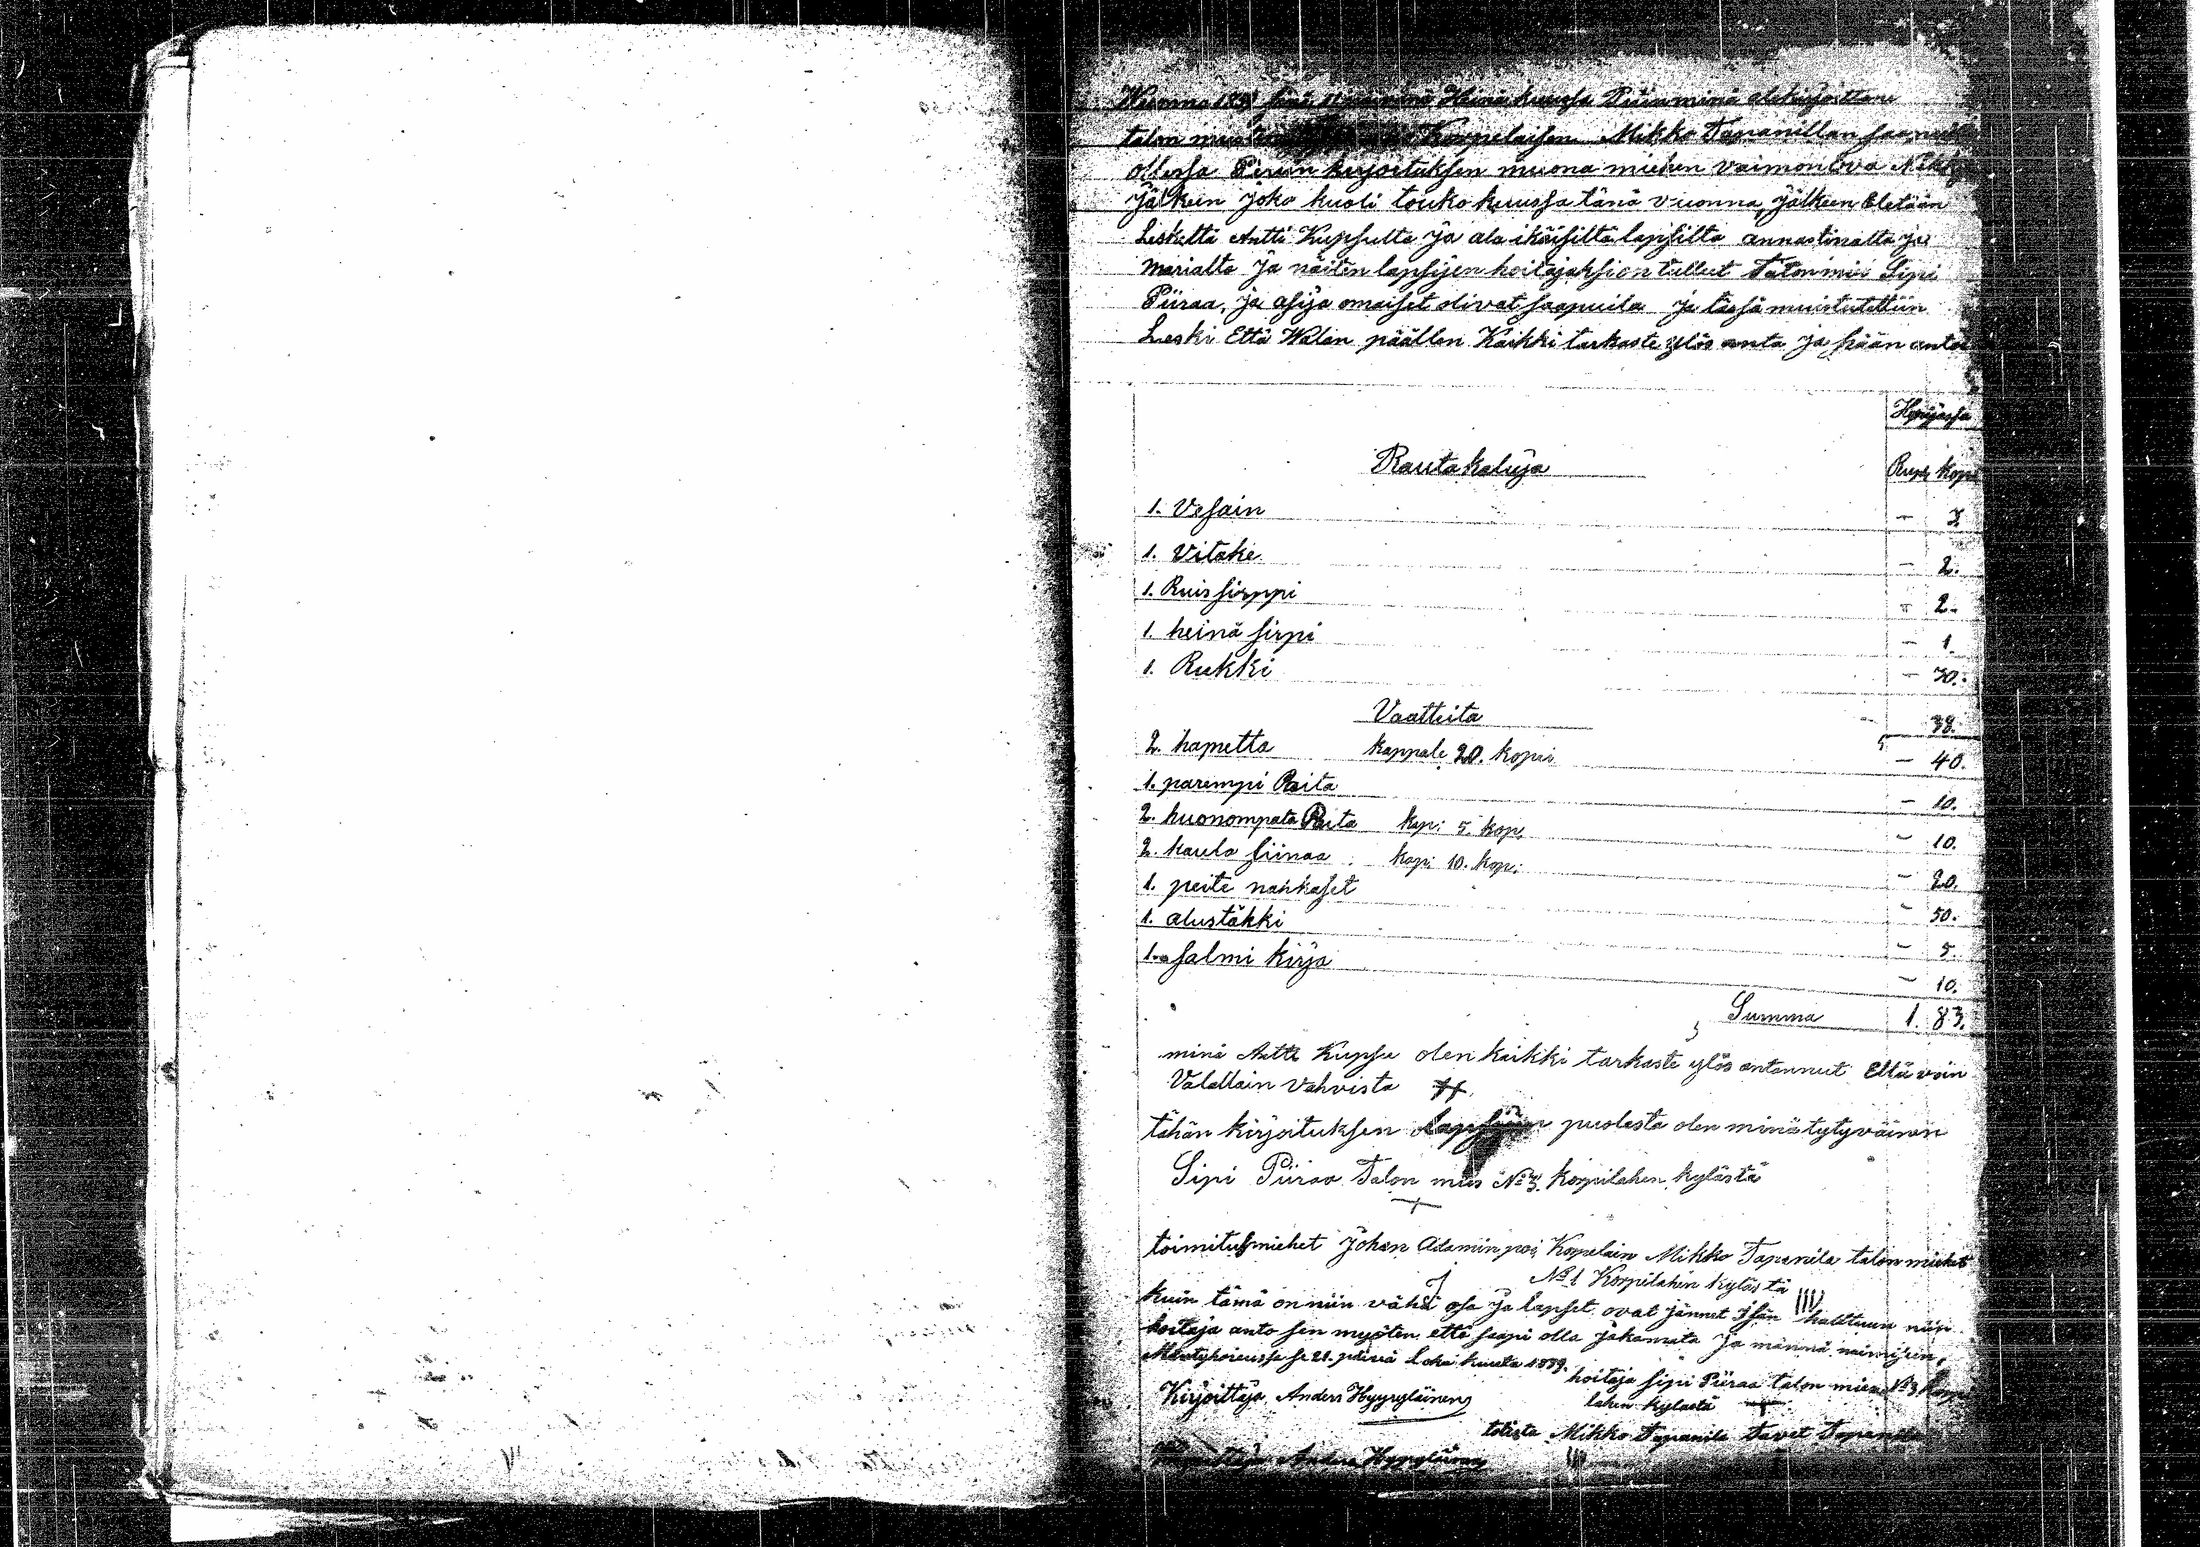 Wuonna sinä päivänä Heinä kuussa Pidin minä allekirjoittanu
talon Korpelaisen Mikko Tapanillan saapuilla
ollessa Perun kirjoituksen muona miehen vaimon Eva
Jälkeen joka kuoli touko kuussa tänä vuonna, jälkeen Eletään
Leskeltä Antti Kupsulta ja ala ikäisiltä lapsilta annastinalta ja
marialta ja näiten lapsijen hoitajaksi on tullut Talon mies Sipi
Piiraa, ja asija omaiset olivat saapuila ja tässä muistutettiin
Leski Että Walan päällen Kaikki tarkaste ylös anta ja hään antoi
Rautakaluja
Rupl. Kopi
1. Vesain - 3
1. Vitake - 2.
1. Ruis sirppi - 2.
1. heinä sirpi - 1.
1. Rukki - 30.
38.
Vaatteita
2. hametta kappale 20. kopei - 40.
1. parempi Paita - 10.
2. huonompata Paita kap: 5. kop. - 10.
2. kaula liinaa kap: 10. kop: - 20.
1. peite nahkaset - 50.
1. alustäkki - 5.
1. salmi kirja - 10.
Summa 1. 83.
minä Antti Kupsu olen kaikki tarkaste ylös antannut Että voin
Valallain vahvista
tähän kirjoituksen Lapsijen puolesta olen minä tytyväinen
Sipi Piiraa Talon mies No 3. korpilahen kylästä
toimitusmiehet Johan Adamin poi Korpelain Mikko Tapanila talon miehet
No 1 Korpilahen kylästä
kuin tämä on niin vähä osa ja lapset ovat jännet Isän halttuun niin
hoitaja anto sen myöten että saapi olla jakamata ja männä naimijsen,
se 21. päivä Loka kuuta 1889.
hoitaja sipi Piiraa talon mies No 3 Korpi
lahen kylästä
Kirjoittaja Anders Hyyryläinen
totista Mikko Tapanila Tavet Tapanila
Anders Hyyryläinen